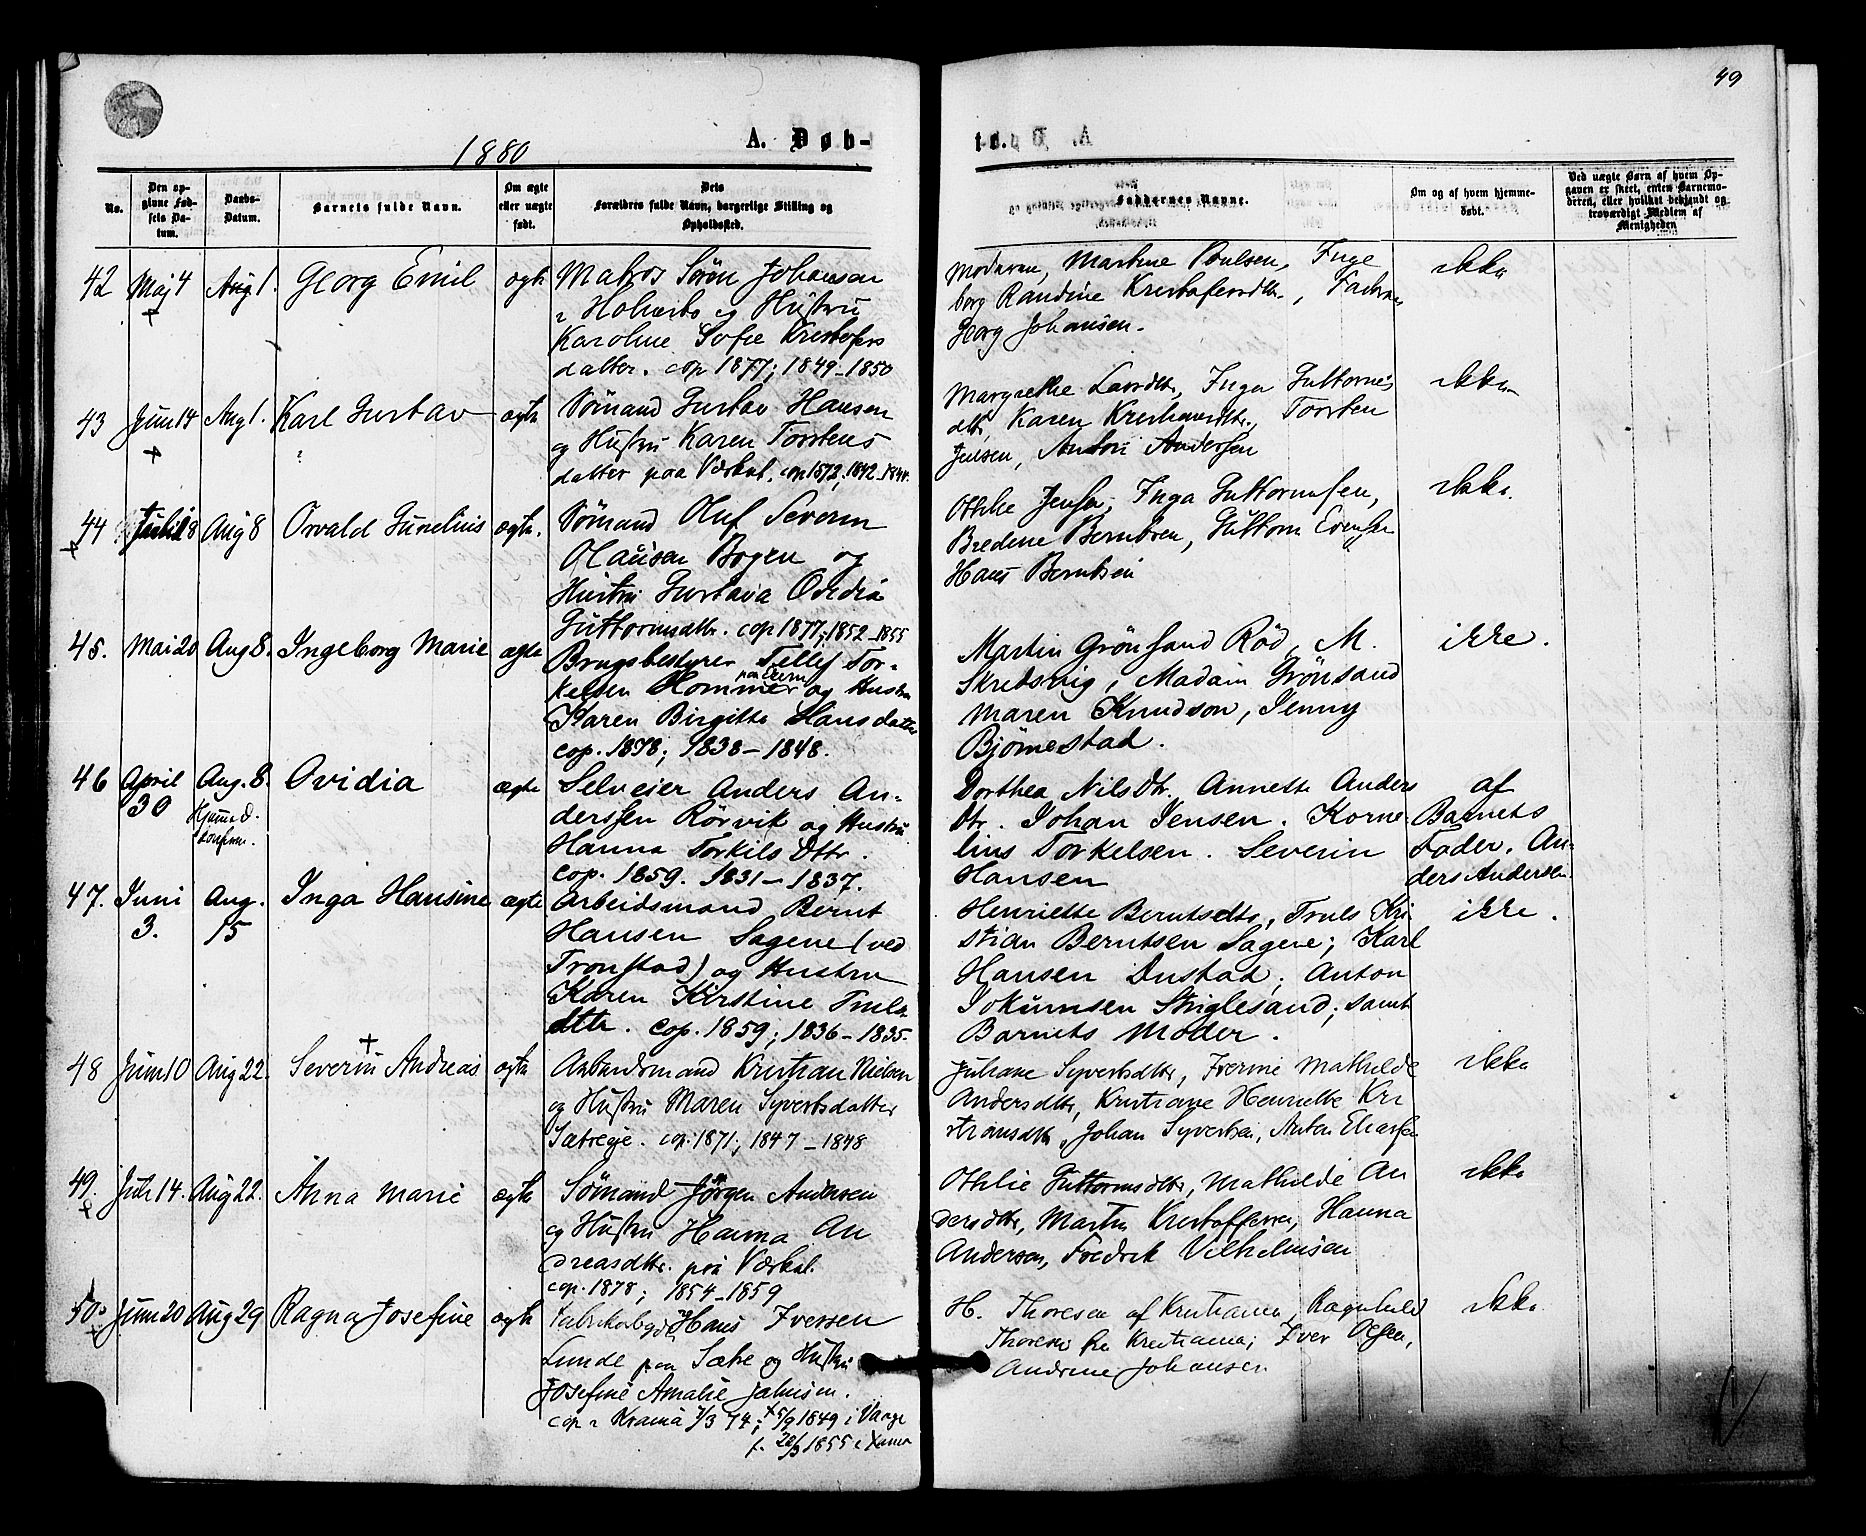 49
1880
A. Døb-
t.
No.
Den op-
givne Fød-
sels Da-
tum.
Daabs-
Datum.
Barnets fulde Navn.
Om ægte
eller uægte
født.
Dets
Forældres fulde Navn, borgerlige Stilling og
Opholdssted.
Faddernes Navne.
Om og af hvem hjemme-
døbt.
Ved uægte Børn af hvem Op-
gaven er skeet, enten Barnemo-
deren, eller hvilket bekjendt og
troværdigt Medlem af
Menigheden
42 Maj 4 Aug 1. Georg Emil ægte Matros Sørøn Johansen
i Holvarbo og Hustru
Karoline Sofie Kristofers
datter. cop 1877; 1849-1850
Moderen, Martine Poulsen, Inge
borg Randine Kristofersdtr., Fadren
Georg Johansen.
ikke
43 Juni 14 Aug 1. Karl Gustav ægte Sømand Gustav Hansen
og Hustru Karen Torstens
datter paa Værket. cop 1872; 1842-1844
Margrethe Larsdtr, Inga Guttorms
dtr, Karen Kristiansdtr., Torsten
Jensen, Anton Andersen
ikke
44 Juli 18 Aug 8 Osvald Gunelius ægte. Sømand Oluf Severin
Olausen Bogen og
Hustru Gustava Ovidia
Guttormsdtr. cop 1877; 1852-1855
Othlie Jensen, Inga Guttormsen,
Bredine Berntsen, Guttorm Evensen
Hans Berntsen
ikke.
45. Mai 20 Aug 8. Ingeborg Marie ægte Brugsbestyrer Tellef Tor-
kelsen Hommer og Hustru
Karen Birgitte Hansdatter
cop. 1878; 1838-1848.
Martin Grönsand Röd, M.
Skredsvig, Madam Grönsand
Maren Knudson, Jenny
Björnestad.
ikke.
46 April
30
Aug. 8.
Hjemmed.
Ovidia ægte Selveier Anders An-
derssen Rörvik og Hustru
Hanna Torkils Dttr.
cop. 1859. 1831-1837.
Dorthea NilsDtr. Annette Anders
Dtr. Johan Jensen. Korne-
lius Torkelsen. Severin
Hansen
af
Barnets
Fader. An-
ders Andersen.
47. Juni
3.
Aug.
15
Inga Hansine ægte Arbeidsmand Bernt
Hansen Sagene (ved
Tronstad) og Hustru
Karen Kirstine Truls
dttr. cop. 1859; 1836-1835.
Henriette Berntsdtr, Truls Kri
stian Berntsen Sagene; Karl
Hansen Dustad; Anton
Jokumsen Stiglesand; samt
Barnets Moder.
ikke.
48 Juni 10 Aug 22. Severin Andreas ægte Arbeidsmand Kristian Nielsen
og Hustru Maren Syvertsdatter
Sætreeje. cop. 1871; 1847-1848
Juliane Syvertsdtr, Mathilde
Andersdtr, Kristiane Henriette Kri
stiansdtr, Johan Syvertsen, Anton Eliassen
ikke
49. Juli 14. Aug 22. Anna Marie ægte Sømand Jörgen Andersen
og Hustru Hanna An
dreasdtr. paa Værket.
cop. 1878; 1854-1859
Othlie Guttormsdtr, Mathilde An
dersdtr, Martin Kristoffersen, Hanna
Andersen, Fredrik Vilhelmsen
ikke
50. Juni 20 Aug 29 Ragna Josefine ægte Hans Iversen
Lunde paa Sætre og Hustru
Josefine Amalie Jahnsen.
cop i Krania 7/3 74; 5/9 1849 i Vange
f. 1855 i Xania
H. Thoresen af Kristiania, Ragnhild
Thoresen fra Kristiania; Iver Olsen,
Andrine Johansen.
ikke